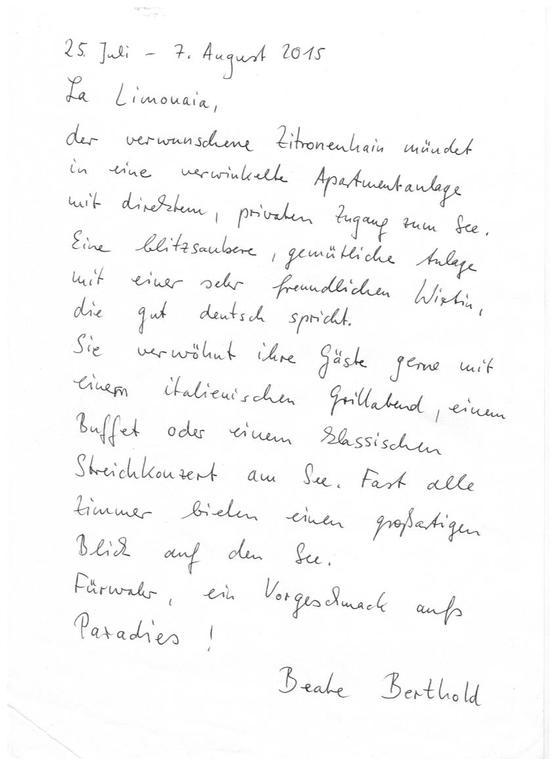 25. Juli - 7. August 2015
La Limonaia,
der verwunschene Zitronenhain mündet
in eine verwinkelte Apartmentanlage
mit direktem, privaten Zugang zum See.
Eine blitzsaubere, gemütliche Anlage
mit einer sehr freundlichen Wirtin,
die gut deutsch spricht.
Sie verwöhnt ihre Gäste gerne mit
einem italienischen Grillabend, einem
Buffet oder einem klassischen
Streichkonzert am See. Fast alle
Zimmer bieten einen großartigen
Blick auf den See.
Fürwahr, ein Vorgeschmack aufs
Paradies!
Beate Berthold